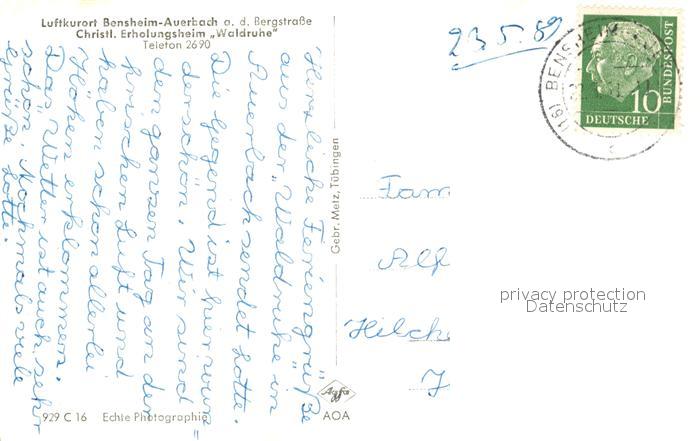 Luftkurort Bensheim-Auerbach a. d. Bergstraße
Christl. Erholungsheim „Waldruhe"
Telefon 2690
23.5.59
(16) BENSHEIM
10
DEUTSCHE
BUNDESPOST
Herzliche Feriengrüße
aus der „Waldruhe" in
Auerbach sendet Lotte.
Die Gegend ist hier wun
derschön. Wir sind
den ganzen Tag an der
frischen Luft und
haben schon allerlei
Höhen erklommen.
Das Wetter ist auch sehr
schön. Nochmals viele
Grüße Lotte.
Gebr. Metz, Tübingen
Fam
Alf
Hilch
J
privacy protection
Datenschutz
929 C 16 Echte Photographie
Agfa
AOA